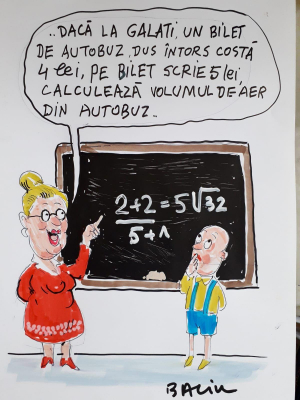 ..DACĂ LA GALATI, UN BILET
DE AUTOBUZ, DUS ÎNTORS COSTĂ
4 lei, PE BILET SCRIE 5 lei,
CALCULEAZĂ VOLUMUL DE AER
DIN AUTOBUZ..
2+2=5√32
5+1
BACIU